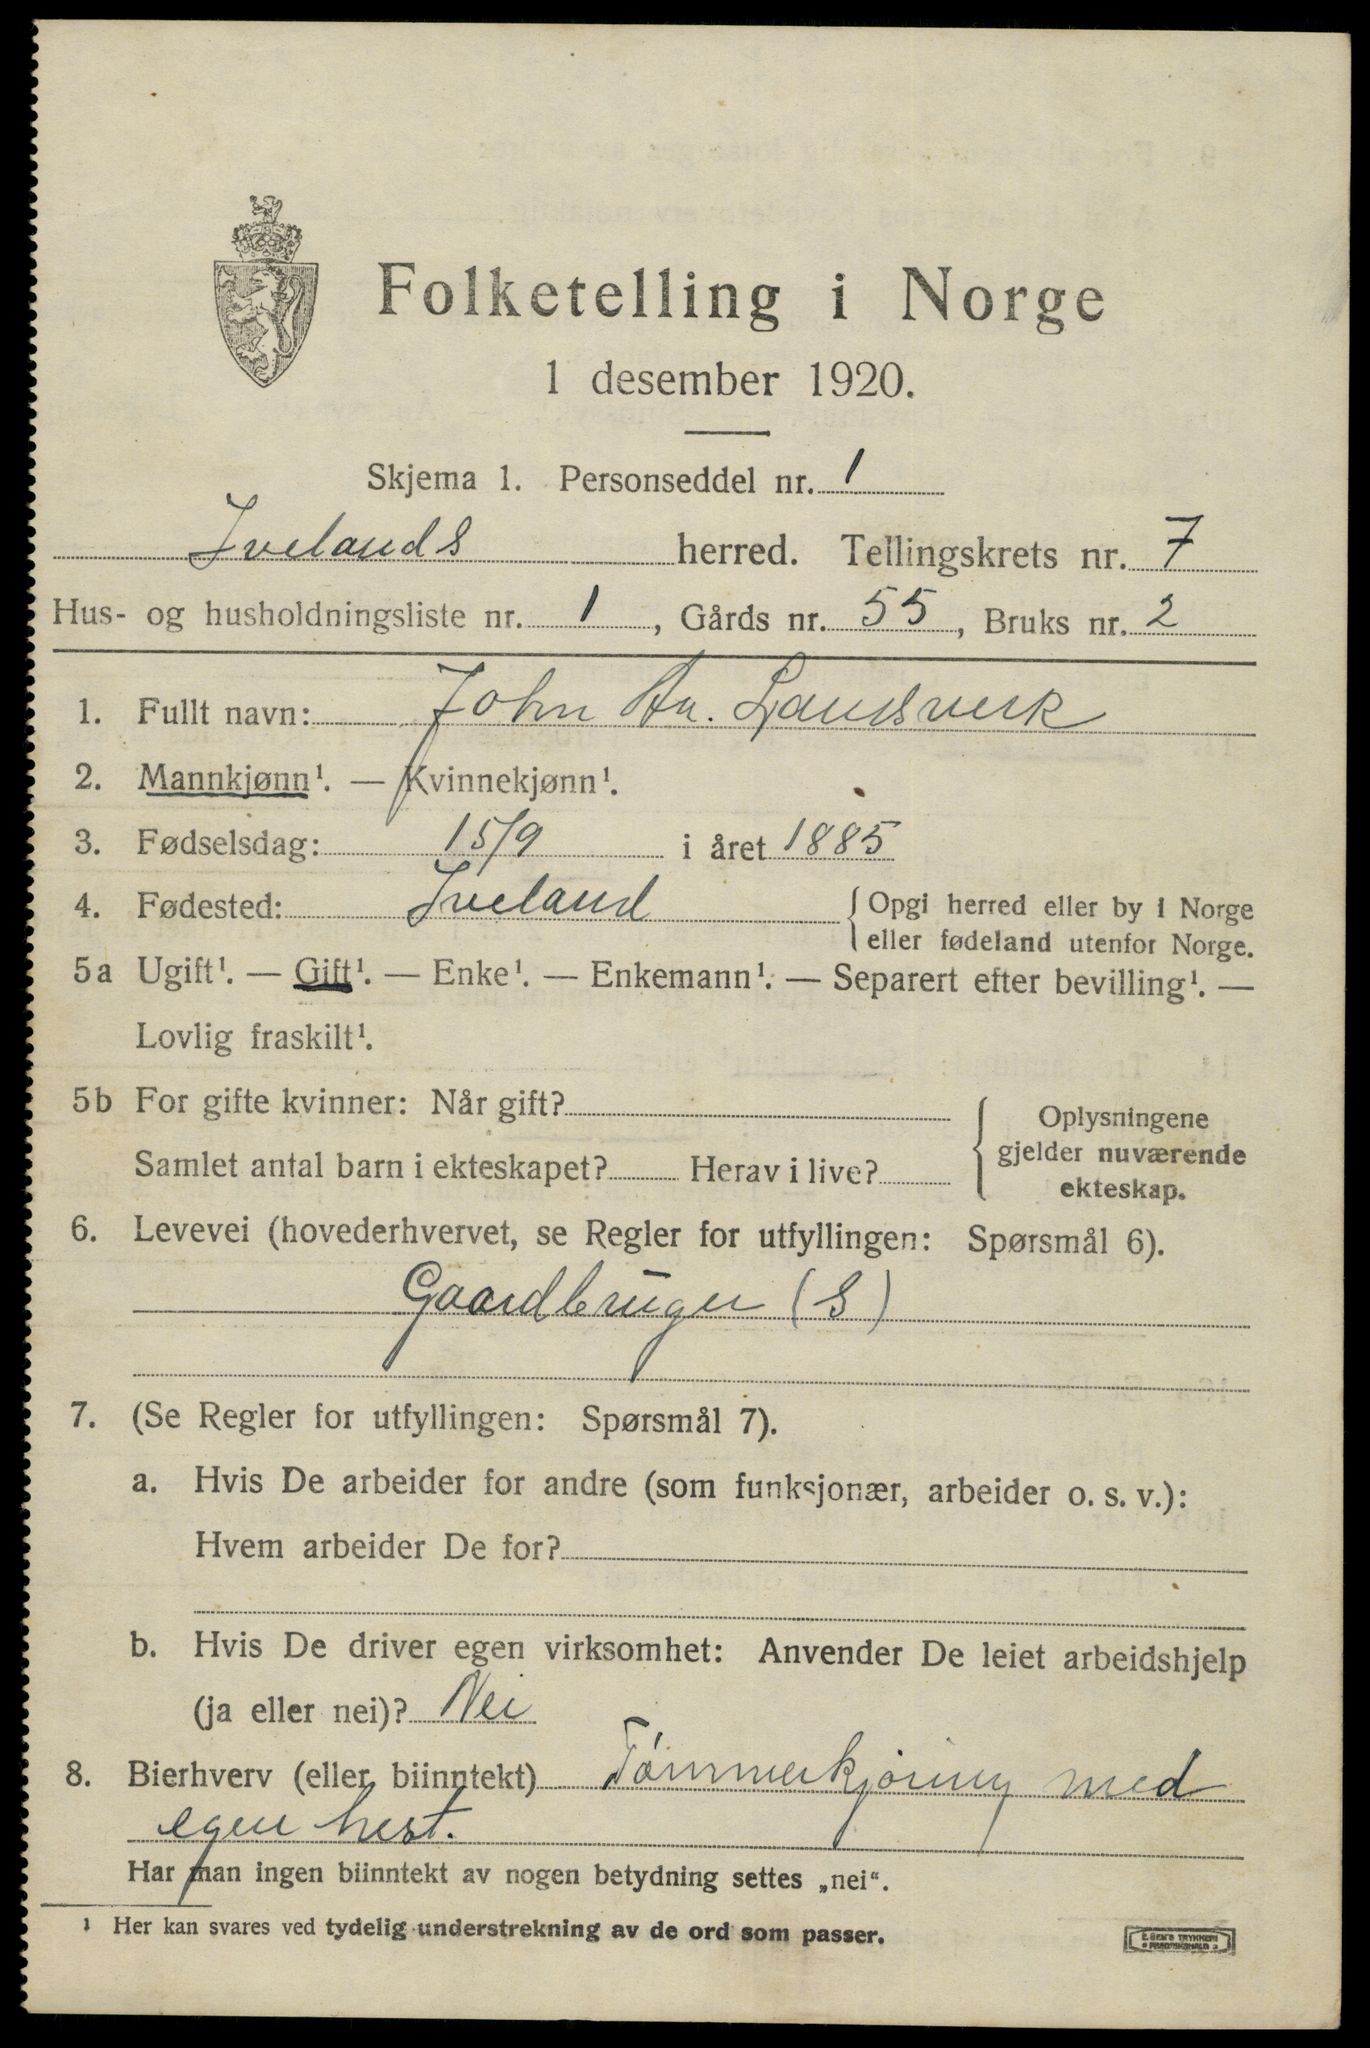 Folketelling i Norge
1 desember 1920.
Skjema 1. Personseddel nr. 1
Ivelands herred. Tellingskrets nr. 7
Hus- og husholdningsliste nr. 1, Gårds nr. 55, Bruks nr. 2
1. Fullt navn: John An. Landsverk
2. Mannkjønn¹. — Kvinnekjønn¹.
3. Fødselsdag: 15/9 i året 1885
4. Fødested: Iveland { Opgi herred eller by i Norge
eller fødeland utenfor Norge.
5a Ugift¹. — Gift¹. — Enke¹. — Enkemann¹. — Separert efter bevilling¹. —
Lovlig fraskilt¹.
5b For gifte kvinner: Når gift?
Samlet antal barn i ekteskapet? Herav i live?
Oplysningene
gjelder nuværende
ekteskap.
6. Levevei (hovederhvervet, se Regler for utfyllingen: Spørsmål 6).
Gaardbruger (S)
7. (Se Regler for utfyllingen: Spørsmål 7).
a. Hvis De arbeider for andre (som funksjonær, arbeider o. s. v.):
Hvem arbeider De for?
b. Hvis De driver egen virksomhet: Anvender De leiet arbeidshjelp
(ja eller nei)? Nei
8. Bierhverv (eller biinntekt) Tømmerkjøring med
egen hest.
Har man ingen biinntekt av nogen betydning settes „nei“.
¹ Her kan svares ved tydelig understrekning av de ord som passer.